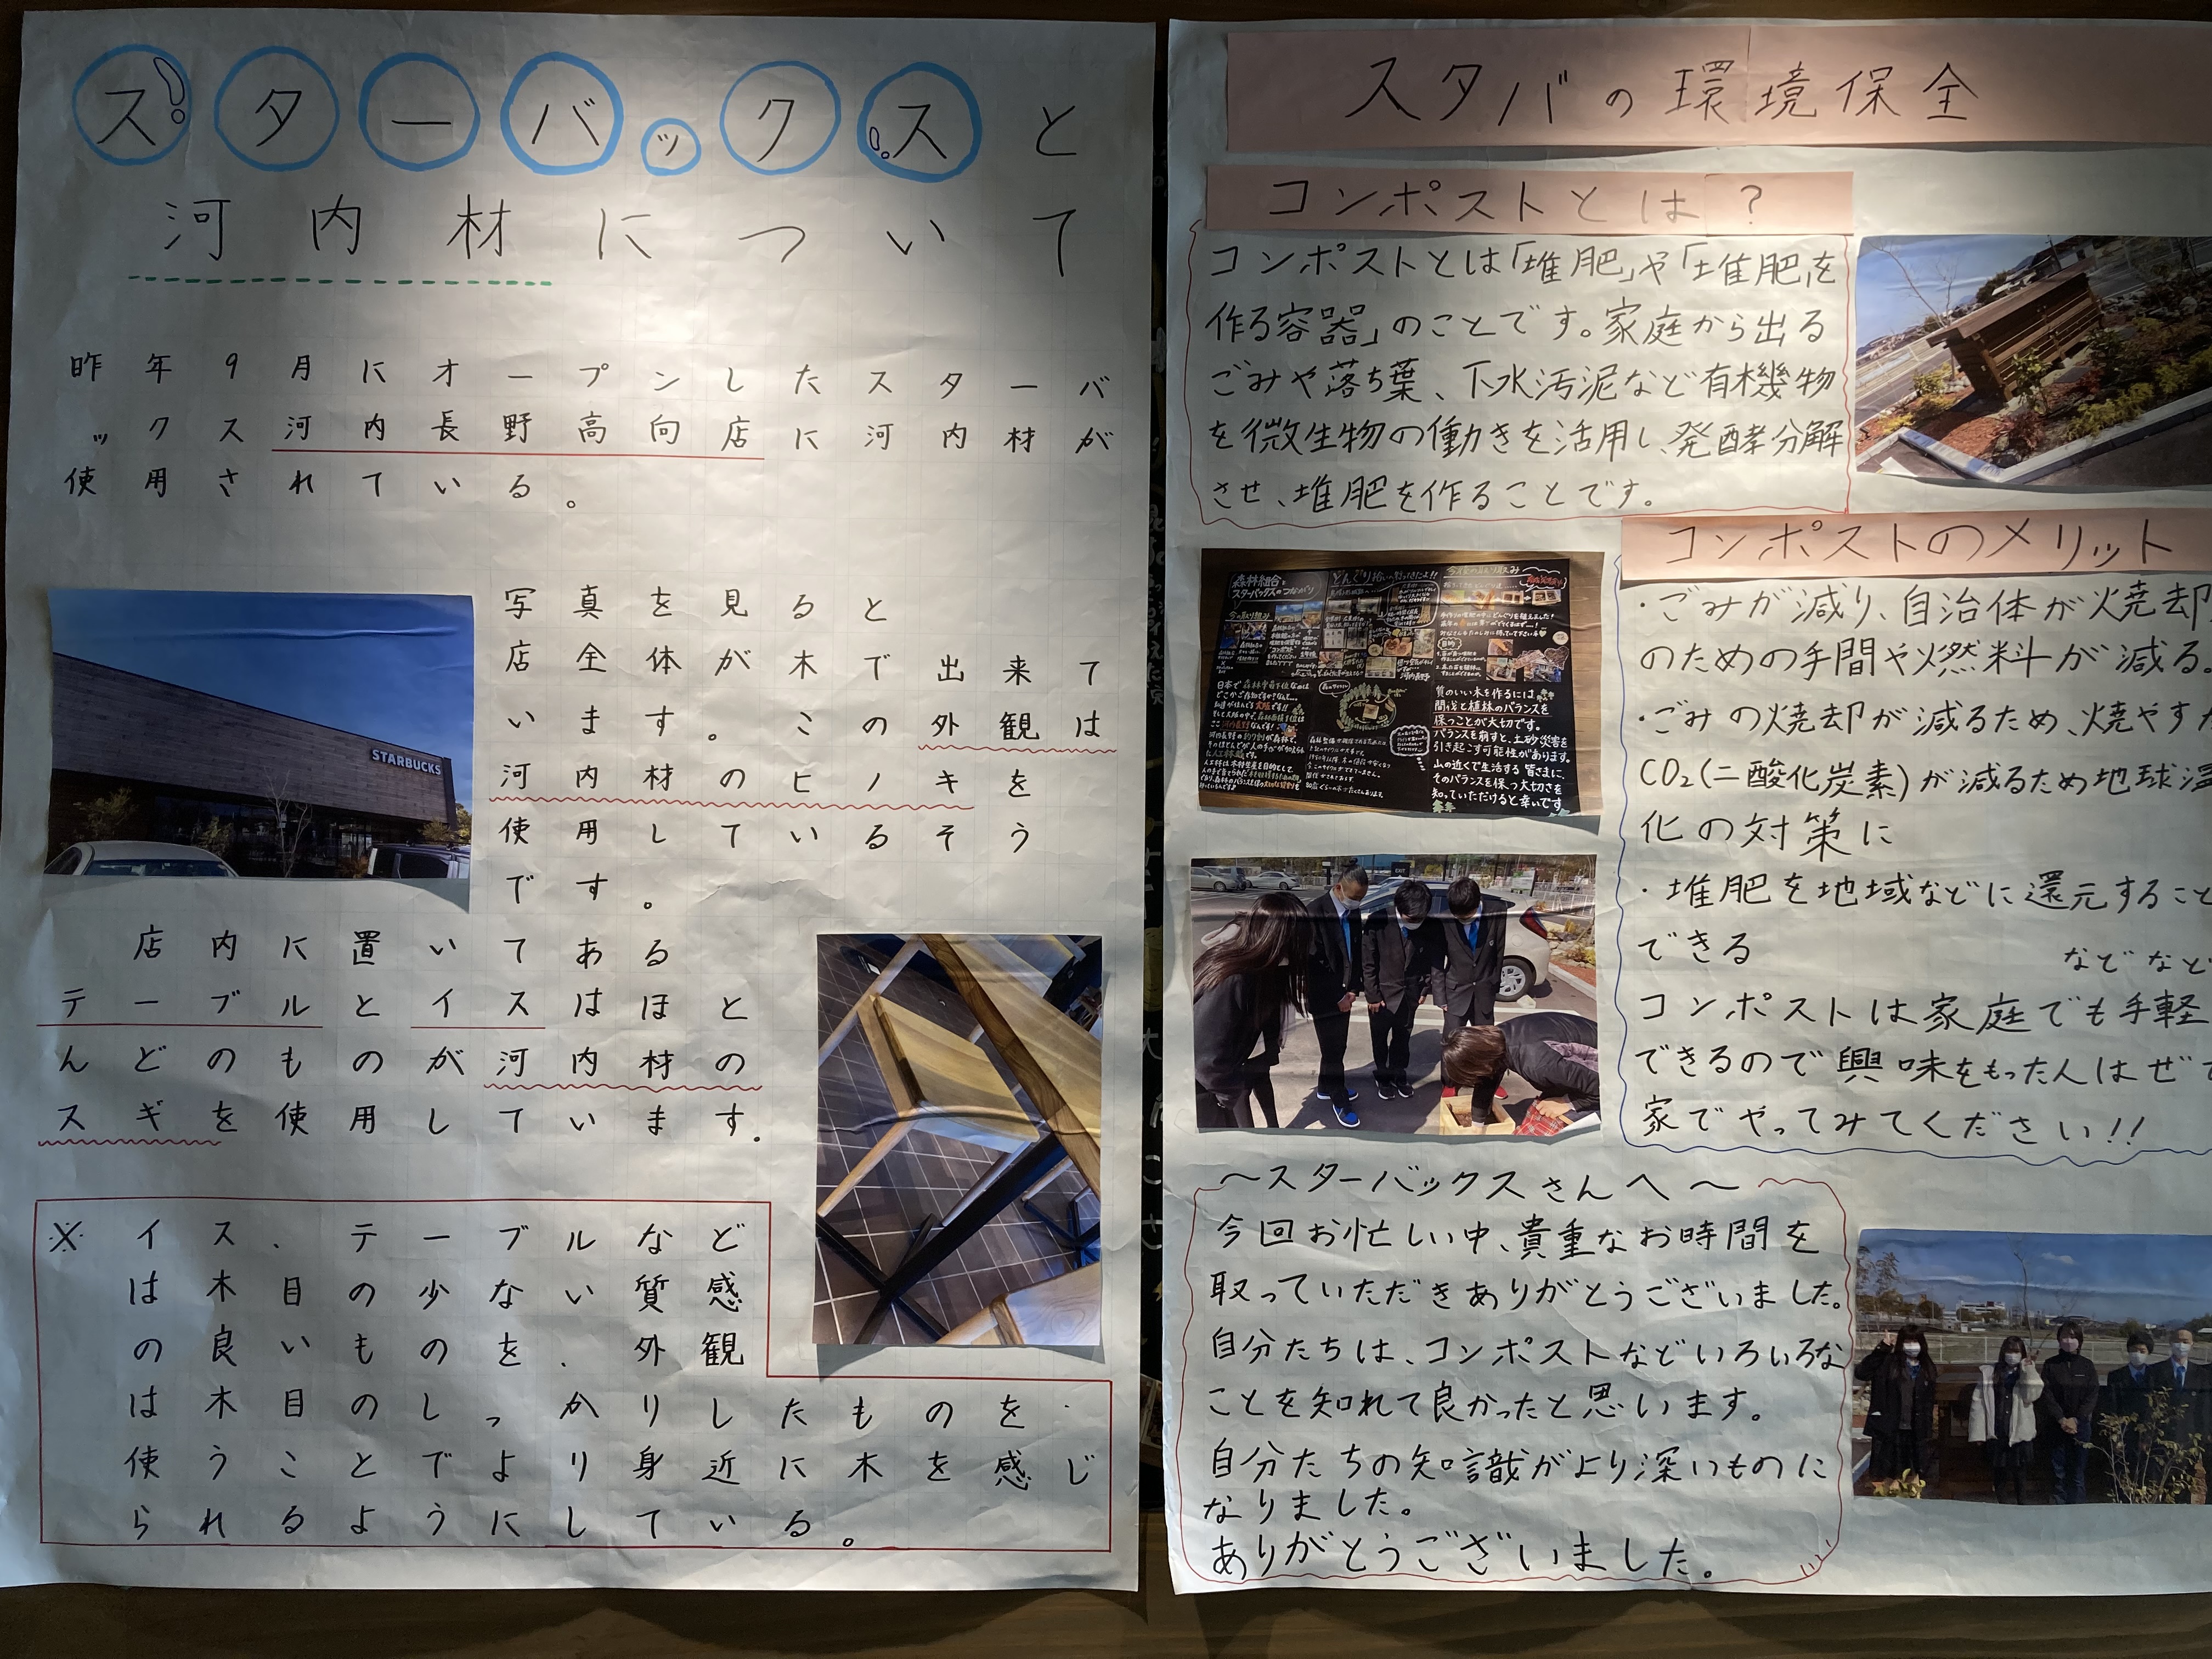 スターバックスと
河内材について
昨年9月にオープンしたスターバ
ックス河内長野高向店に河内材が
使用されている。
写真を見ると
店全体が木で出来て
います。この外観は
河内材のヒノキを
使用しているそう
です。
STARBUCKS
店内に置いてある
テーブルとイスはほと
んどのものが河内材の
スギを使用しています.
※イス、テーブルなど
は木目の少ない質感
の良いものを、外観
は木目のしっかりしたものを
使うことでより身近に木を感じ
られるようにしている。
スタバの環境保全
コンポストとは?
コンポストとは「堆肥」や「堆肥を
作る容器」のことです。家庭から出る
ごみや落ち葉、下水汚泥など有機物
を微生物の働きを活用し、発酵分解
させ、堆肥を作ることです。
コンポストのメリット
・ごみが減り、自治体が焼却
のための手間や燃料が減る。
・ごみの焼却が減るため、焼やすた
CO₂(二酸化炭素)が減るため地球温
化の対策に
・堆肥を地域などに還元すること
できる
などなど
コンポストは家庭でも手軽
できるので興味をもった人はぜひ
家でやってみてください!!
森林組合と
スターバックスのつながり
どんぐり拾いへ行ってきたよ!!
質のいい木を作るには
間伐と植林のバランスを
保つことが大切です。
バランスを崩すと、土砂災害を
引き起こす可能性があります。
山の近くで生活する皆さまに、
そのバランスを保つ大切さを
知っていただけると幸いです
〜スターバックスさんへ〜
今回お忙しい中、貴重なお時間を
取っていただきありがとうございました。
自分たちは、コンポストなどいろいろな
ことを知れて良かったと思います。
自分たちの知識がより深いものに
なりました。
ありがとうございました。